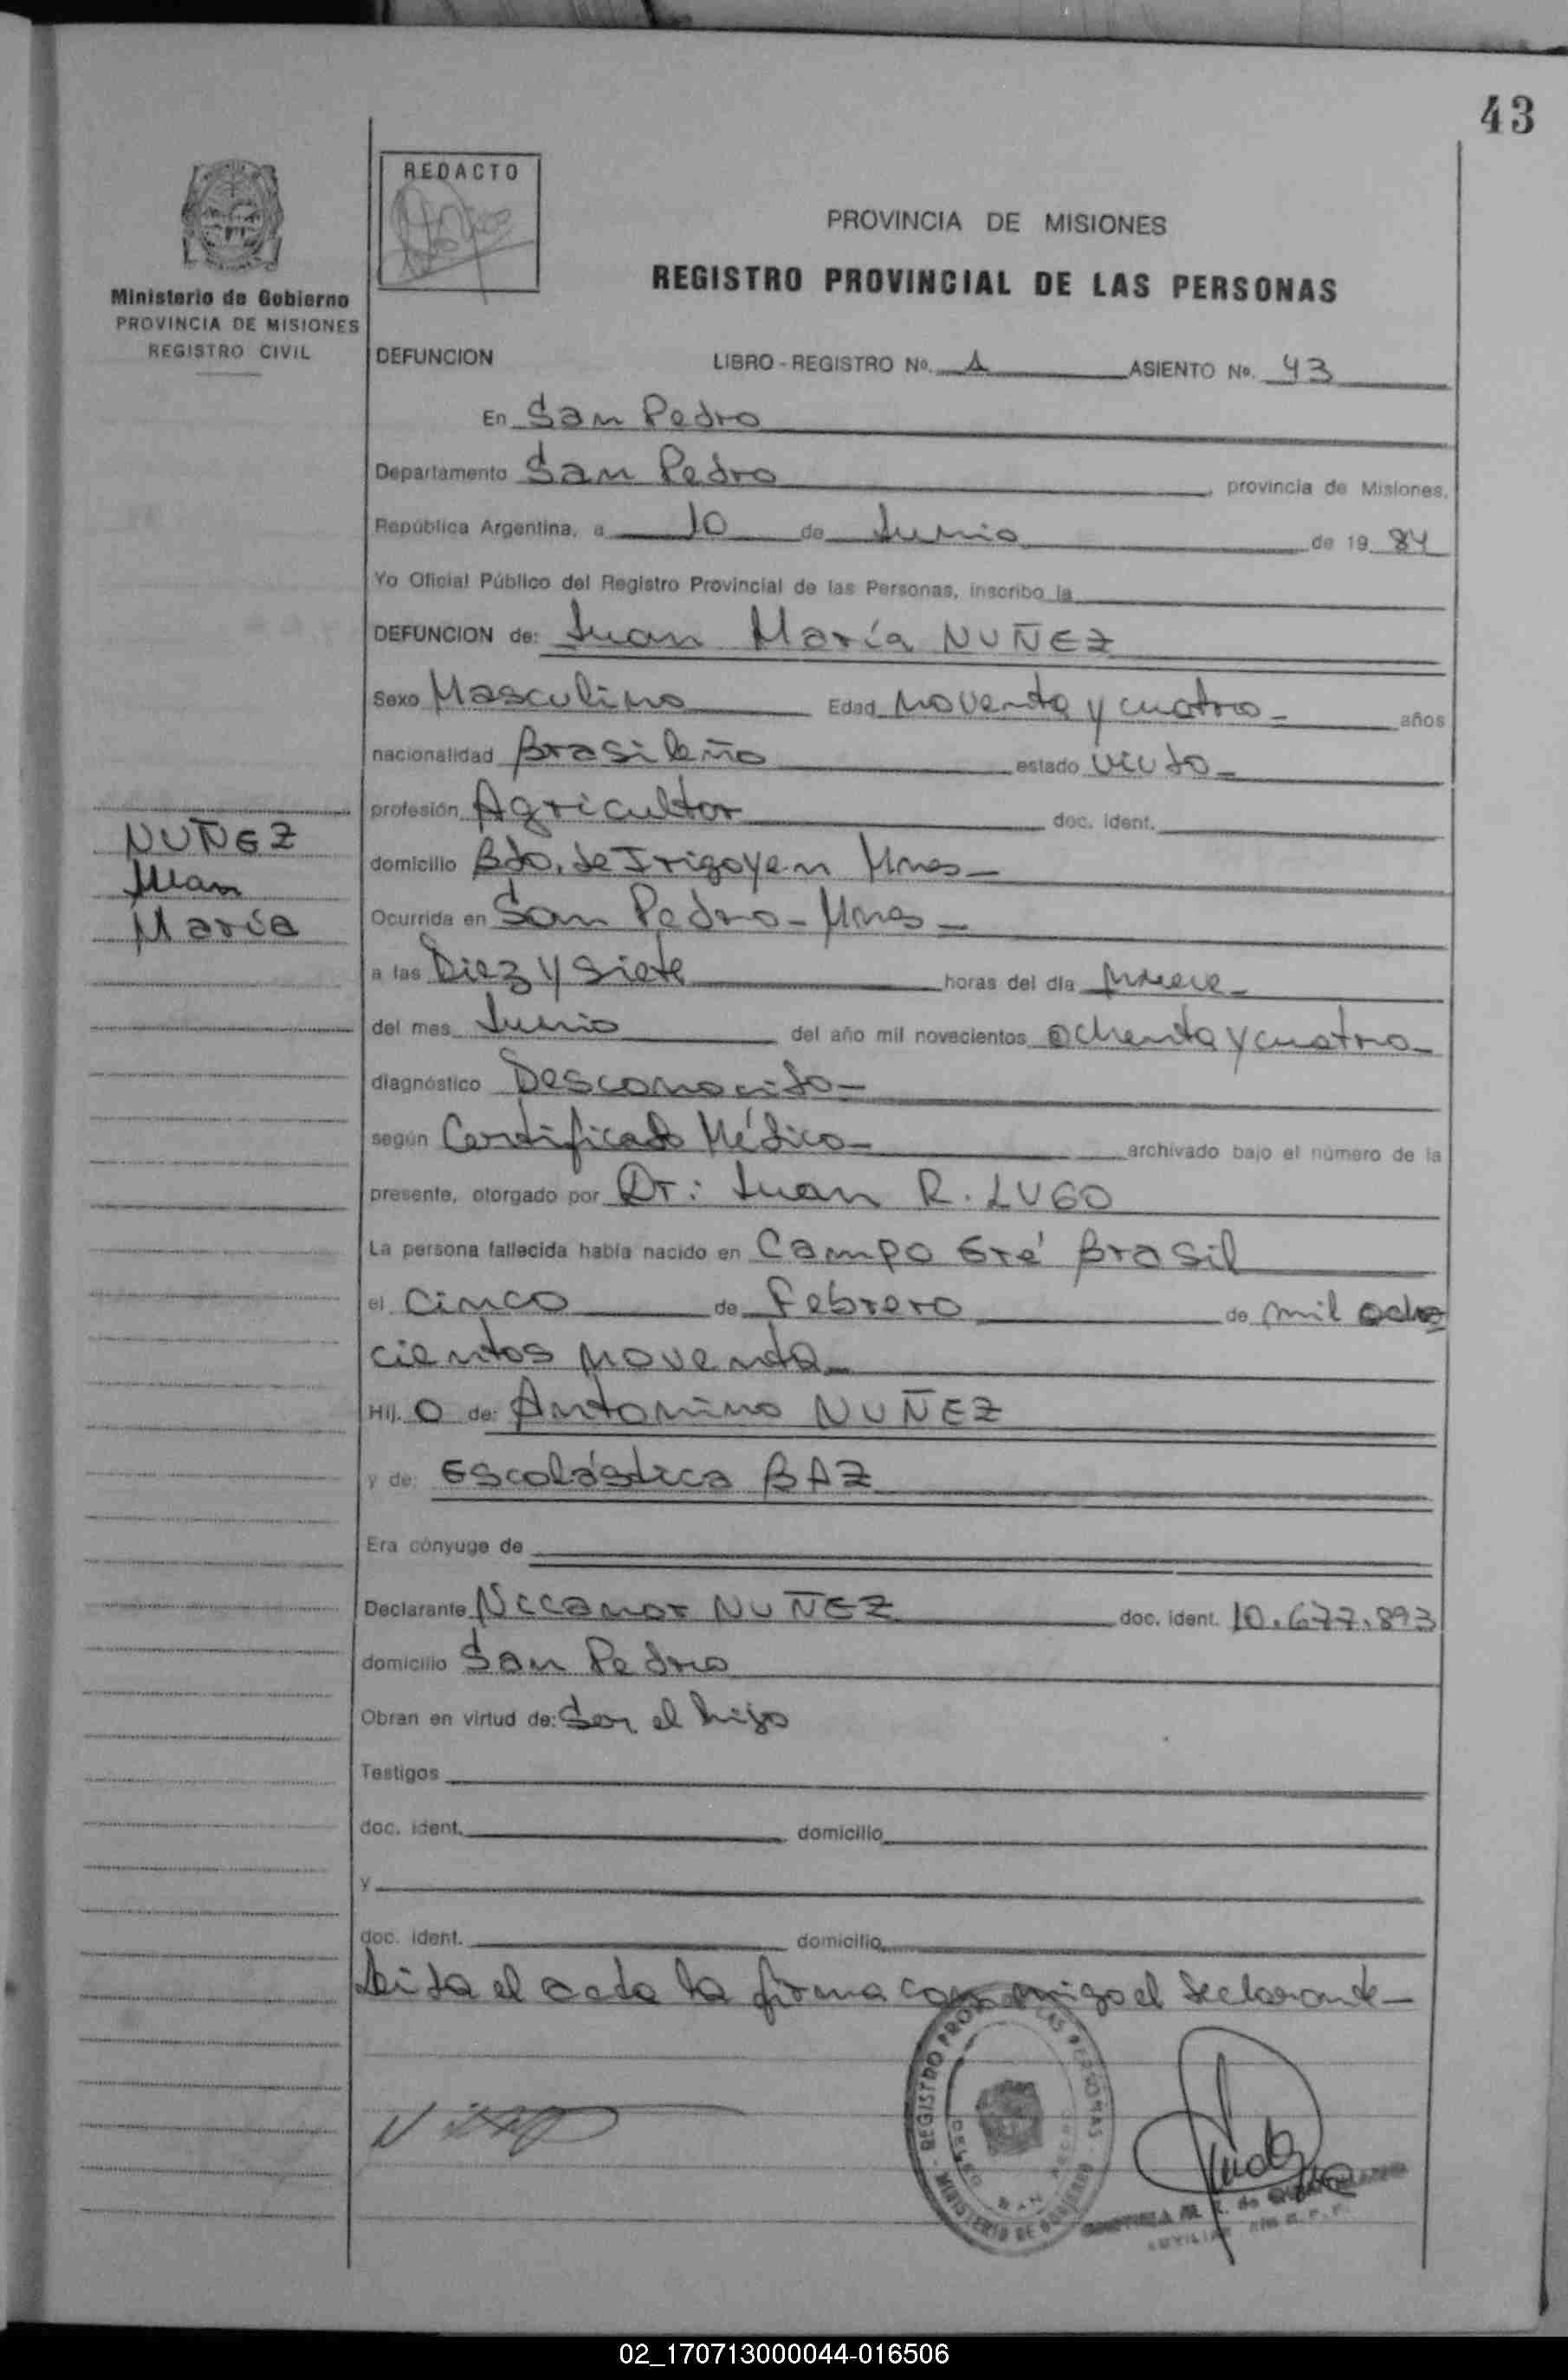 43
REDACTO
Ministerio de Gobierno
PROVINCIA DE MISIONES
REGISTRO CIVIL
PROVINCIA DE MISIONES
REGISTRO PROVINCIAL DE LAS PERSONAS
DEFUNCION LIBRO - REGISTRO Nº. 1 ASIENTO Nº. 43
En San Pedro
Departamento San Pedro, provincia de Misiones,
República Argentina, a 10 de Junio de 19 84
Yo Oficial Público del Registro Provincial de las Personas, inscribo la
DEFUNCION de: Juan María NUÑEZ
Sexo Masculino Edad noventa y cuatro años
nacionalidad Brasileño estado viudo
profesión Agricultor doc. ident.
domicilio Bdo. de Irigoyen Mnes
Ocurrida en San Pedro - Mnes
a las Diez y siete horas del día nueve
del mes Junio del año mil novecientos ochenta y cuatro
diagnóstico Desconocido
según Certificado Médico archivado bajo el número de la
presente, otorgado por Dr: Juan R. LUGO
La persona fallecida había nacido en Campo Eré Brasil
el cinco de Febrero de mil ocho
cientos noventa
Hij. o de: Antonino NUÑEZ
y de: Escolástica BAZ
Era cónyuge de
Declarante Nicanor NUÑEZ doc. ident. 10.677.893
domicilio San Pedro
Obran en virtud de: Ser el hijo
Testigos
doc. ident. domicilio
y
doc. ident. domicilio
Leida el acta la firma conmigo el declarante
NUÑEZ
Juan
María
REGISTRO LAS PERSONAS
MINISTERIO DE GOBIERNO
02_170713000044-016506